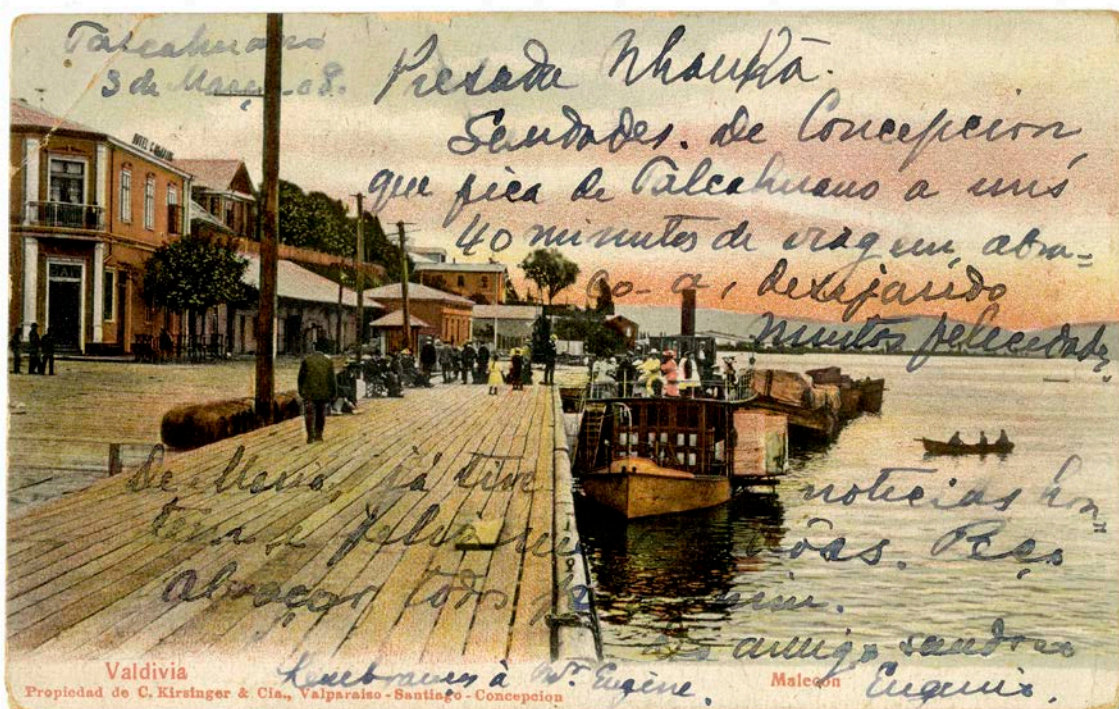 Talcahuano
3 de Março-08.
Presada Nhanhã.
Saudades. de Concepcion,
que fica de Talcahuano a uns
40 minutos de viagem, abra=
ço-a, desejando
muitas felicidades,
HOTEL
BAR
De Maria, já tive noticias hon"
tem e felizmente bôas. Peço
abraçar todos por mim.
amigo saudoso
Lembranças à Mr. Eugène. Eugenio.
Valdivia Malecon
Propiedad de C. Kirsinger & Cia., Valparaiso-Santiago-Concepcion